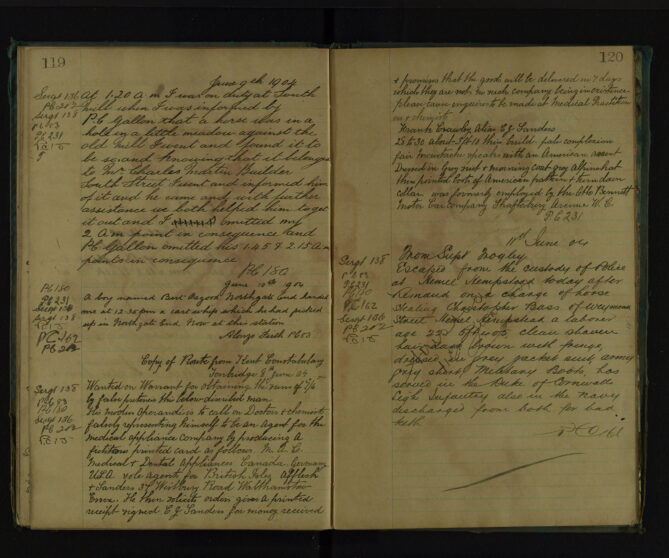 119
June 9th 1904
Sergt 136
PC 202
Sergt 138
PC 53
PC 231
PC 15
At 1-20 A m I was on duty at South
mill when I was informed by
P.C Gallon that a horse was in a
hold in a little meadow against the
old mill I went and found it to
be so and knowing that it belongs
to Mr Charles Martin Builder
South Street I went and informed him
of it and he came and with further
assistance we both helped him to get
it out and I omitted my
2 A.m point in consequence and
PC Gallon omitted his 1.45 & 2.15 A m
points in consequence
PC 180
June 10th 1904
PC 180
PC 231
Sergt 136
Sergt 138
PC 15
PC 162
PC 202
A boy named Bert Northgate End hands
me at 12.35 pm a whip which he had picked
up in Northgate End. Now at this station
Alonzo Frith PC 53
Copy of Route from Kent Constabulary
Tonbridge 8th June 04
Sergt 138
PC 53
PC 180
Sergt 136
PC 202
PC 15
Wanted on Warrant for obtaining the sum of 7/6
by false pretences the below described man.
His modus operandi is to call on Doctors & chemists
falsely representing himself to be an agent for the
medical appliance Company by producing a
fictitious printed card as follows M. A. C.
Medical & Dental Appliances Canada Germany
U.S.A sole agents for British Isles Affleck
& Sanders 37 Westbury Road Walthamstow
Essex. He then solicits orders gives a printed
receipt signed E J Sanders for money received
120
& promises that the goods will be delivered in 7 days
which they are not no such company being in existence
please cause enquiries to be made at Medical Practitioners
& chemists
Frank Crawley Alias E J Sanders
25 to 30 about 5ft 10 thin build pale complexion
fair moustache speaks with an American accent
Dressed in Grey suit & morning coat grey Alpine hat
thin pointed boots of American pattern & turn down
collar was formerly employed by the Otto Bennett
Motor Car Company Shaftesbury Avenue W.C
PC 231
11th June 04
Sergt 138
PC 53
PC 231
PC 162
Sergt 136
PC 202
PC 15
From Supt
Escaped from the custody of Police
at Hemel Hempstead today after
Remand on a charge of horse
stealing Christopher Bass of Weymouth
Street Hemel Hempstead a laborer
age 22 clean shaven
hair dark brown with fringe,
dressed in grey jacket suit army
grey shirt, Military Boots, has
served in the Duke of Cornwalls
Light Infantry also in the Navy
discharged from both for bad
teeth